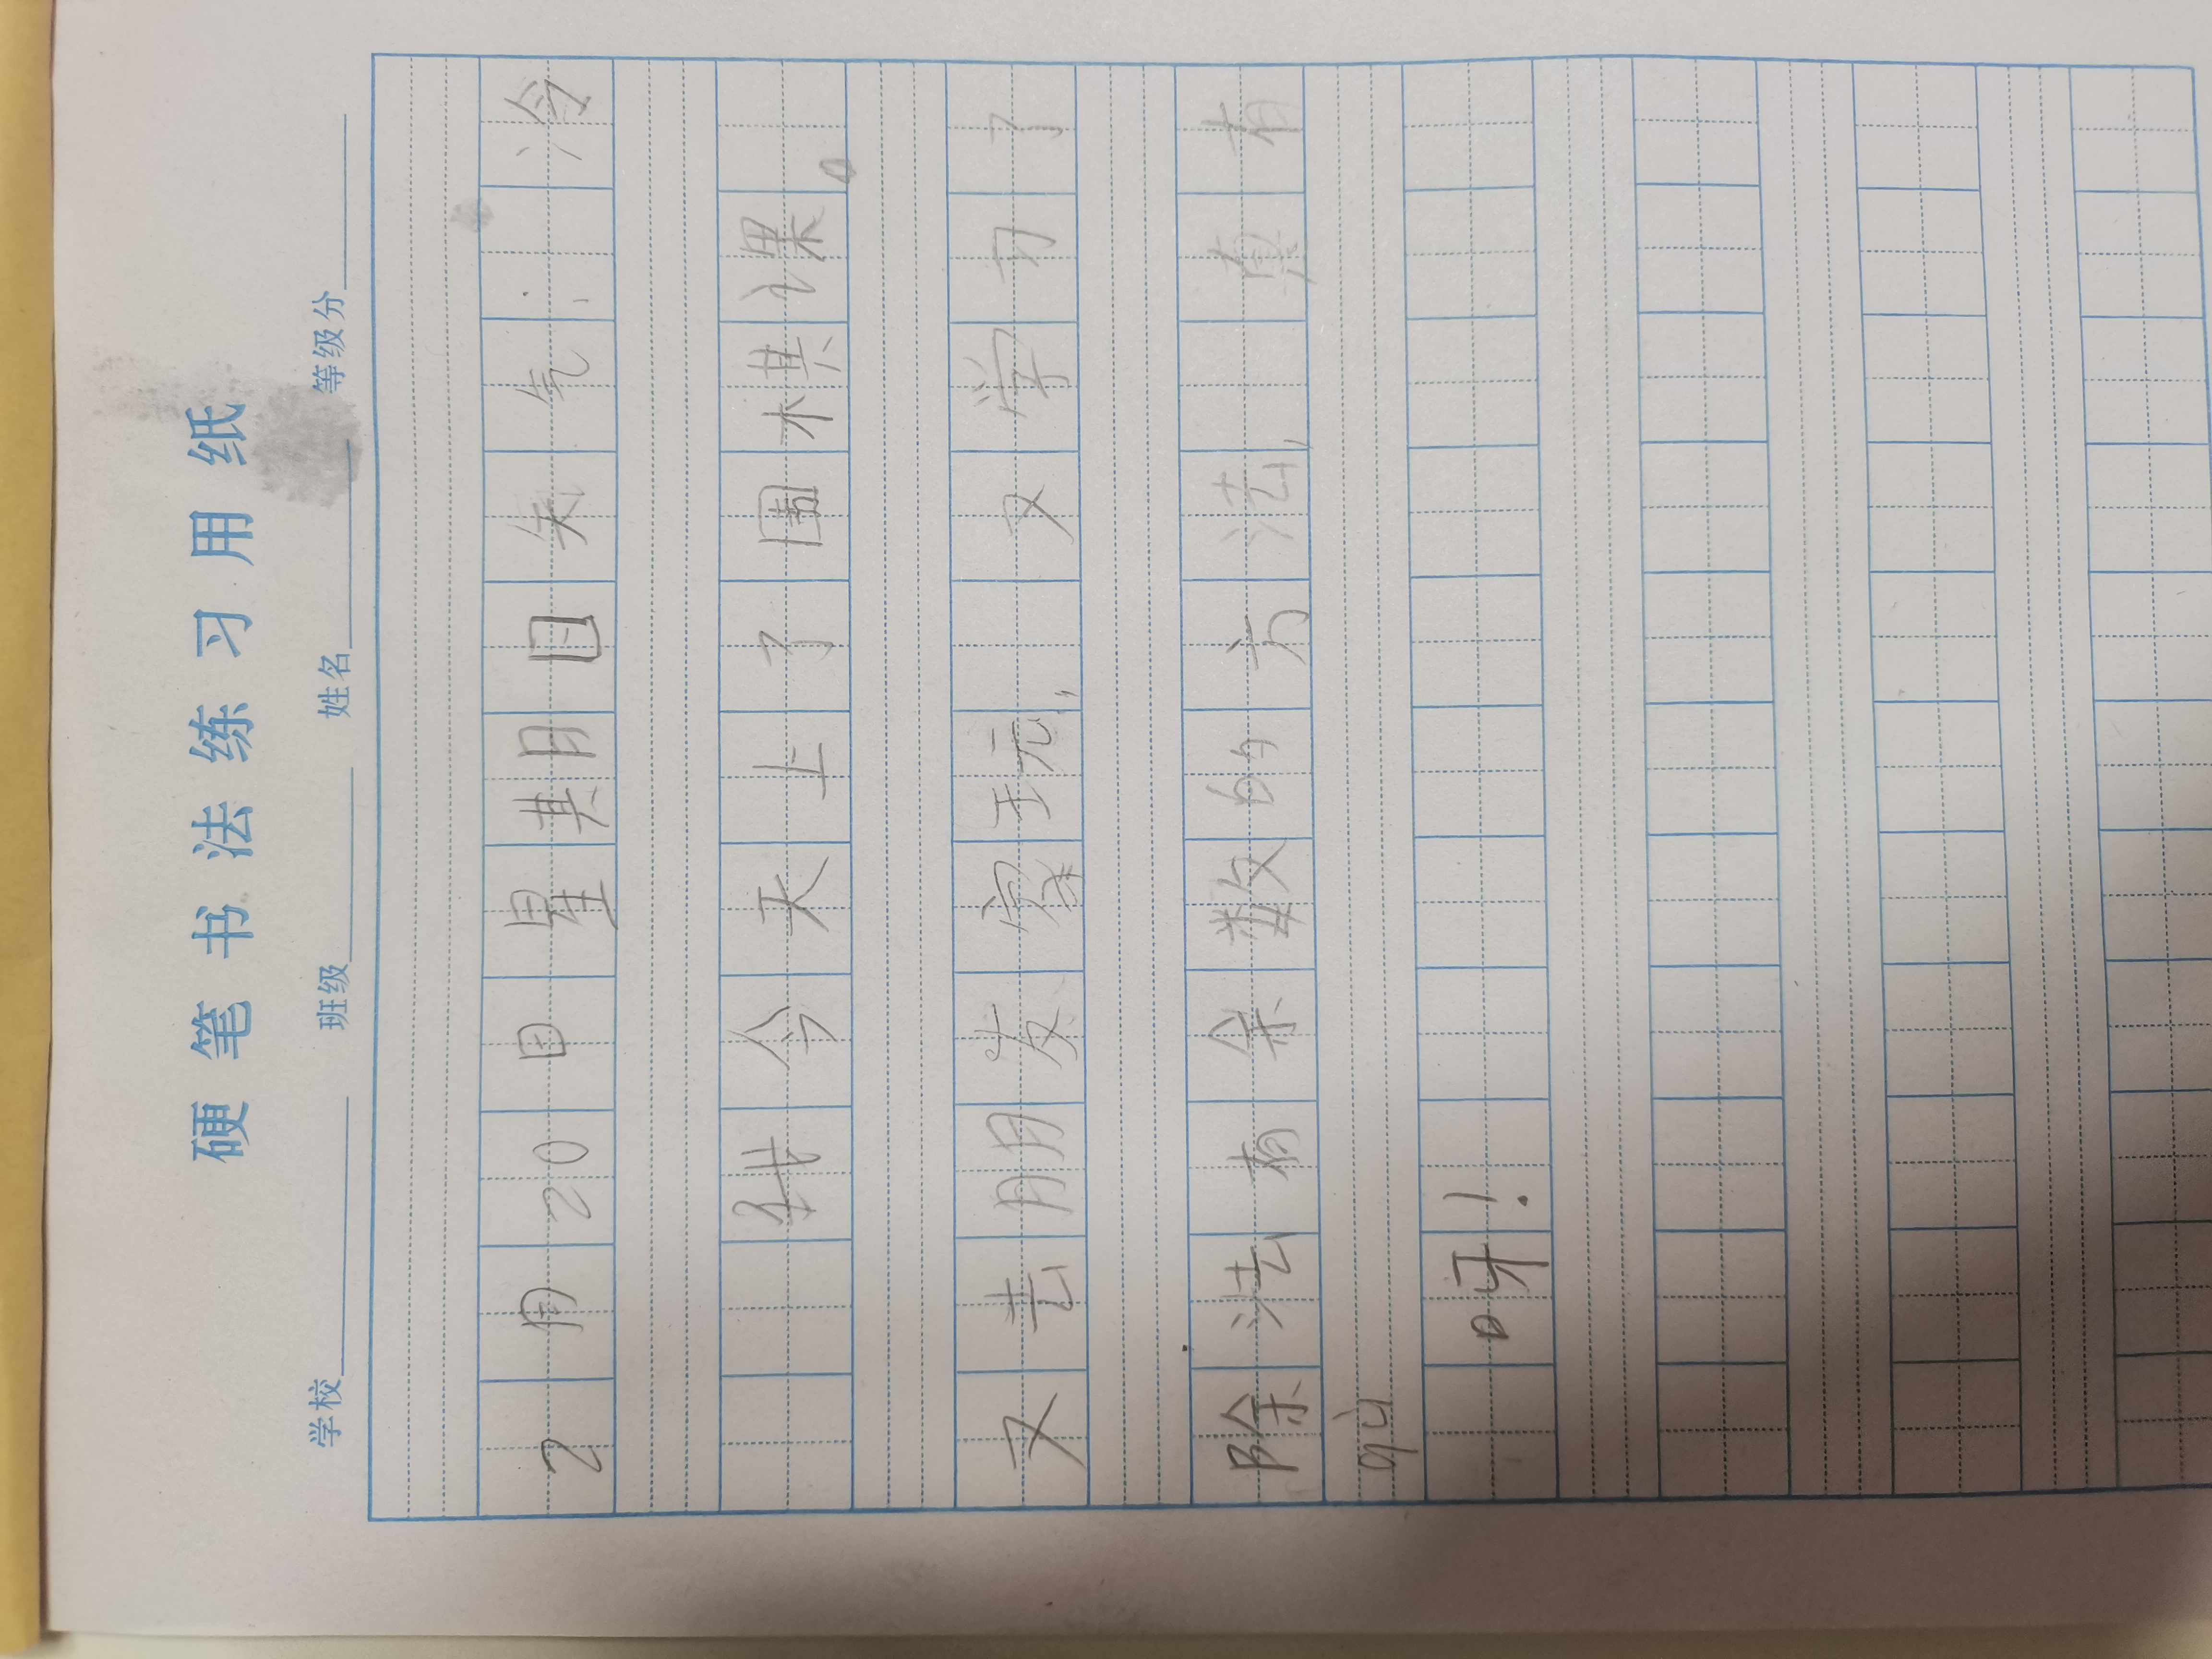 硬笔书法练习用纸
学校 班级 姓名 等级分
2月20日星期日矢气：冷
我今天上了围棋课。
又去朋友家玩，又学习了
除法有余数的方法，真有
qù
呀！